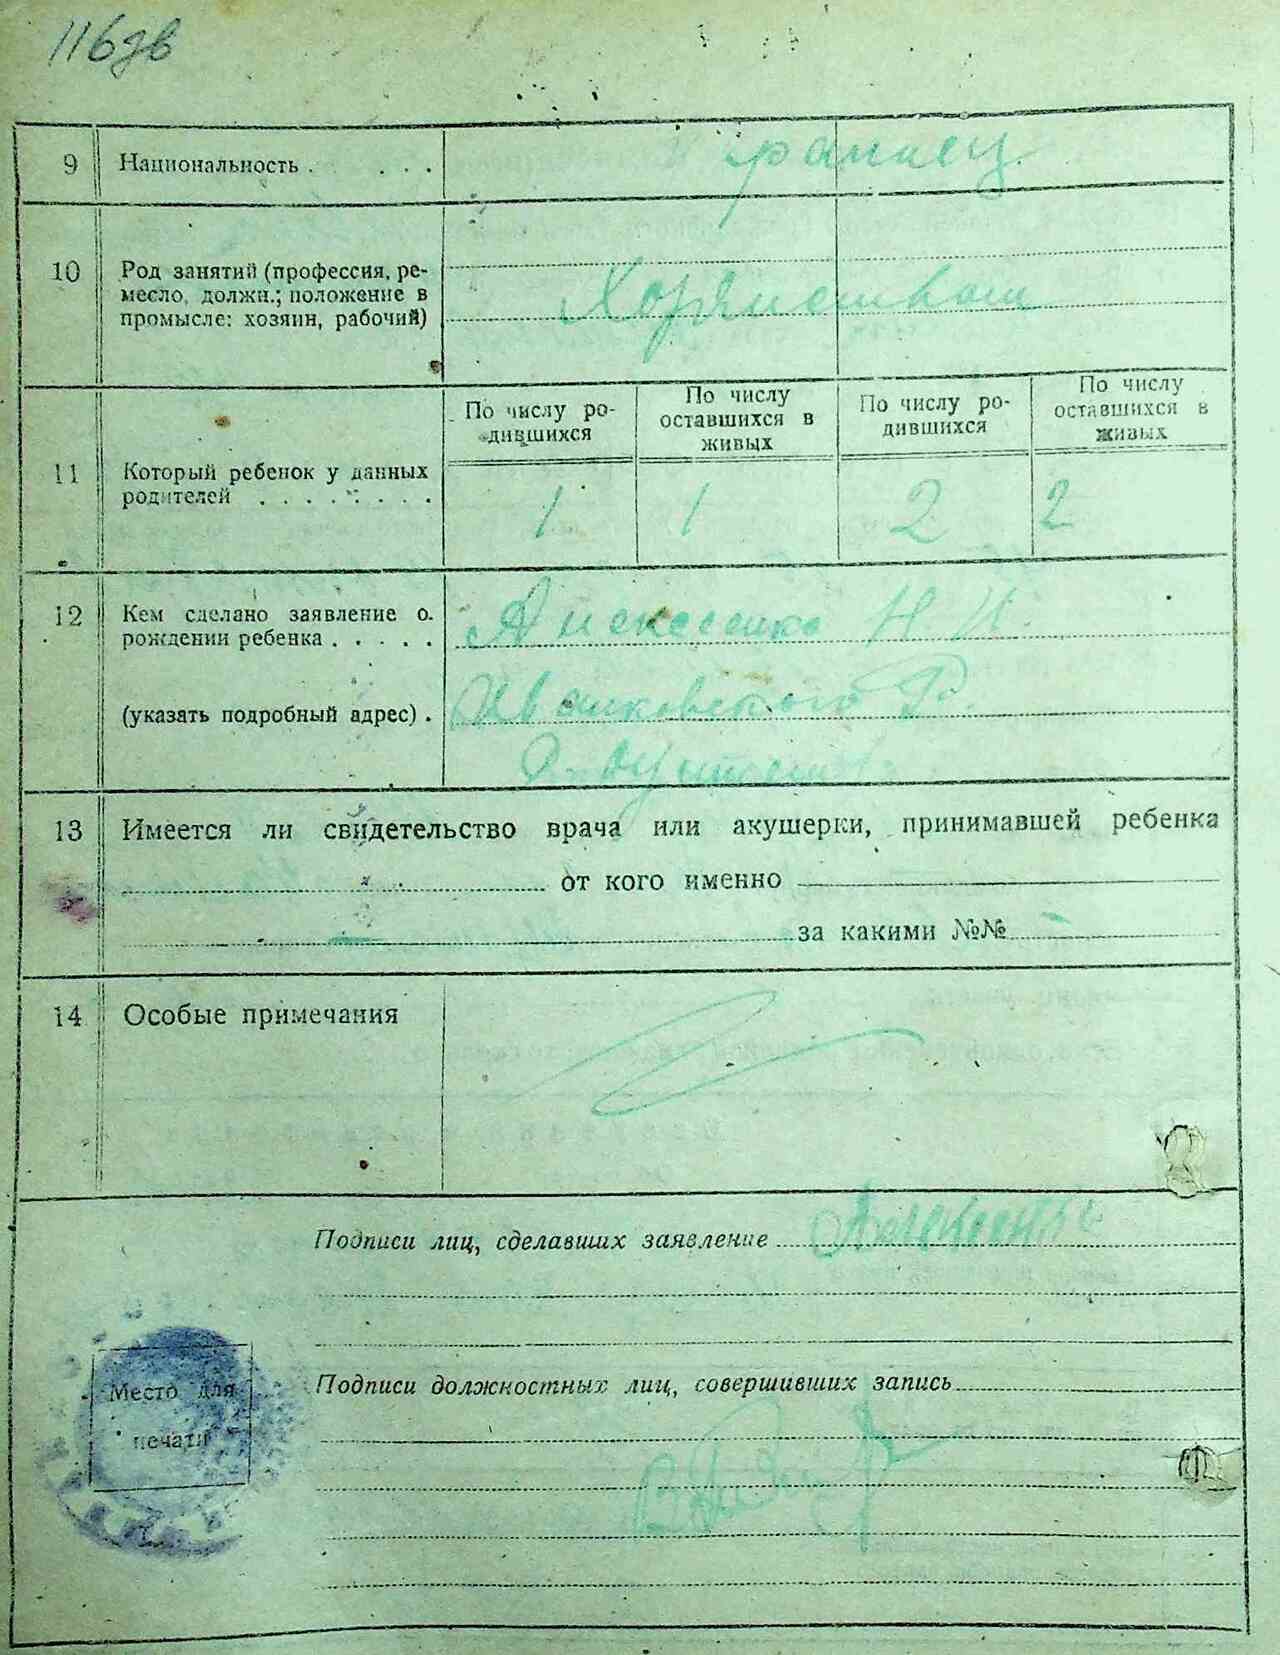 116зв
9 Национальность . . . .
10 Род занятий (профессия, ре-
месло, должн.; положение в
промысле: хозяин, рабочий)
По числу ро-
дившихся
По числу
оставшихся в
живых
По числу ро-
дившихся
По числу
оставшихся в
живых
11 Который ребенок у данных
родителей . . . . . . . .
1 1 2 2
12 Кем сделано заявление о.
рождении ребенка . . . . .
Алексеенко Н И.
(указать подробный адрес) .
13 Имеется ли свидетельство врача или акушерки, принимавшей ребенка
от кого именно
за какими №№
14 Особые примечания
Подписи лиц, сделавших заявление
Подписи должностных лиц, совершивших запись
Место для
печати